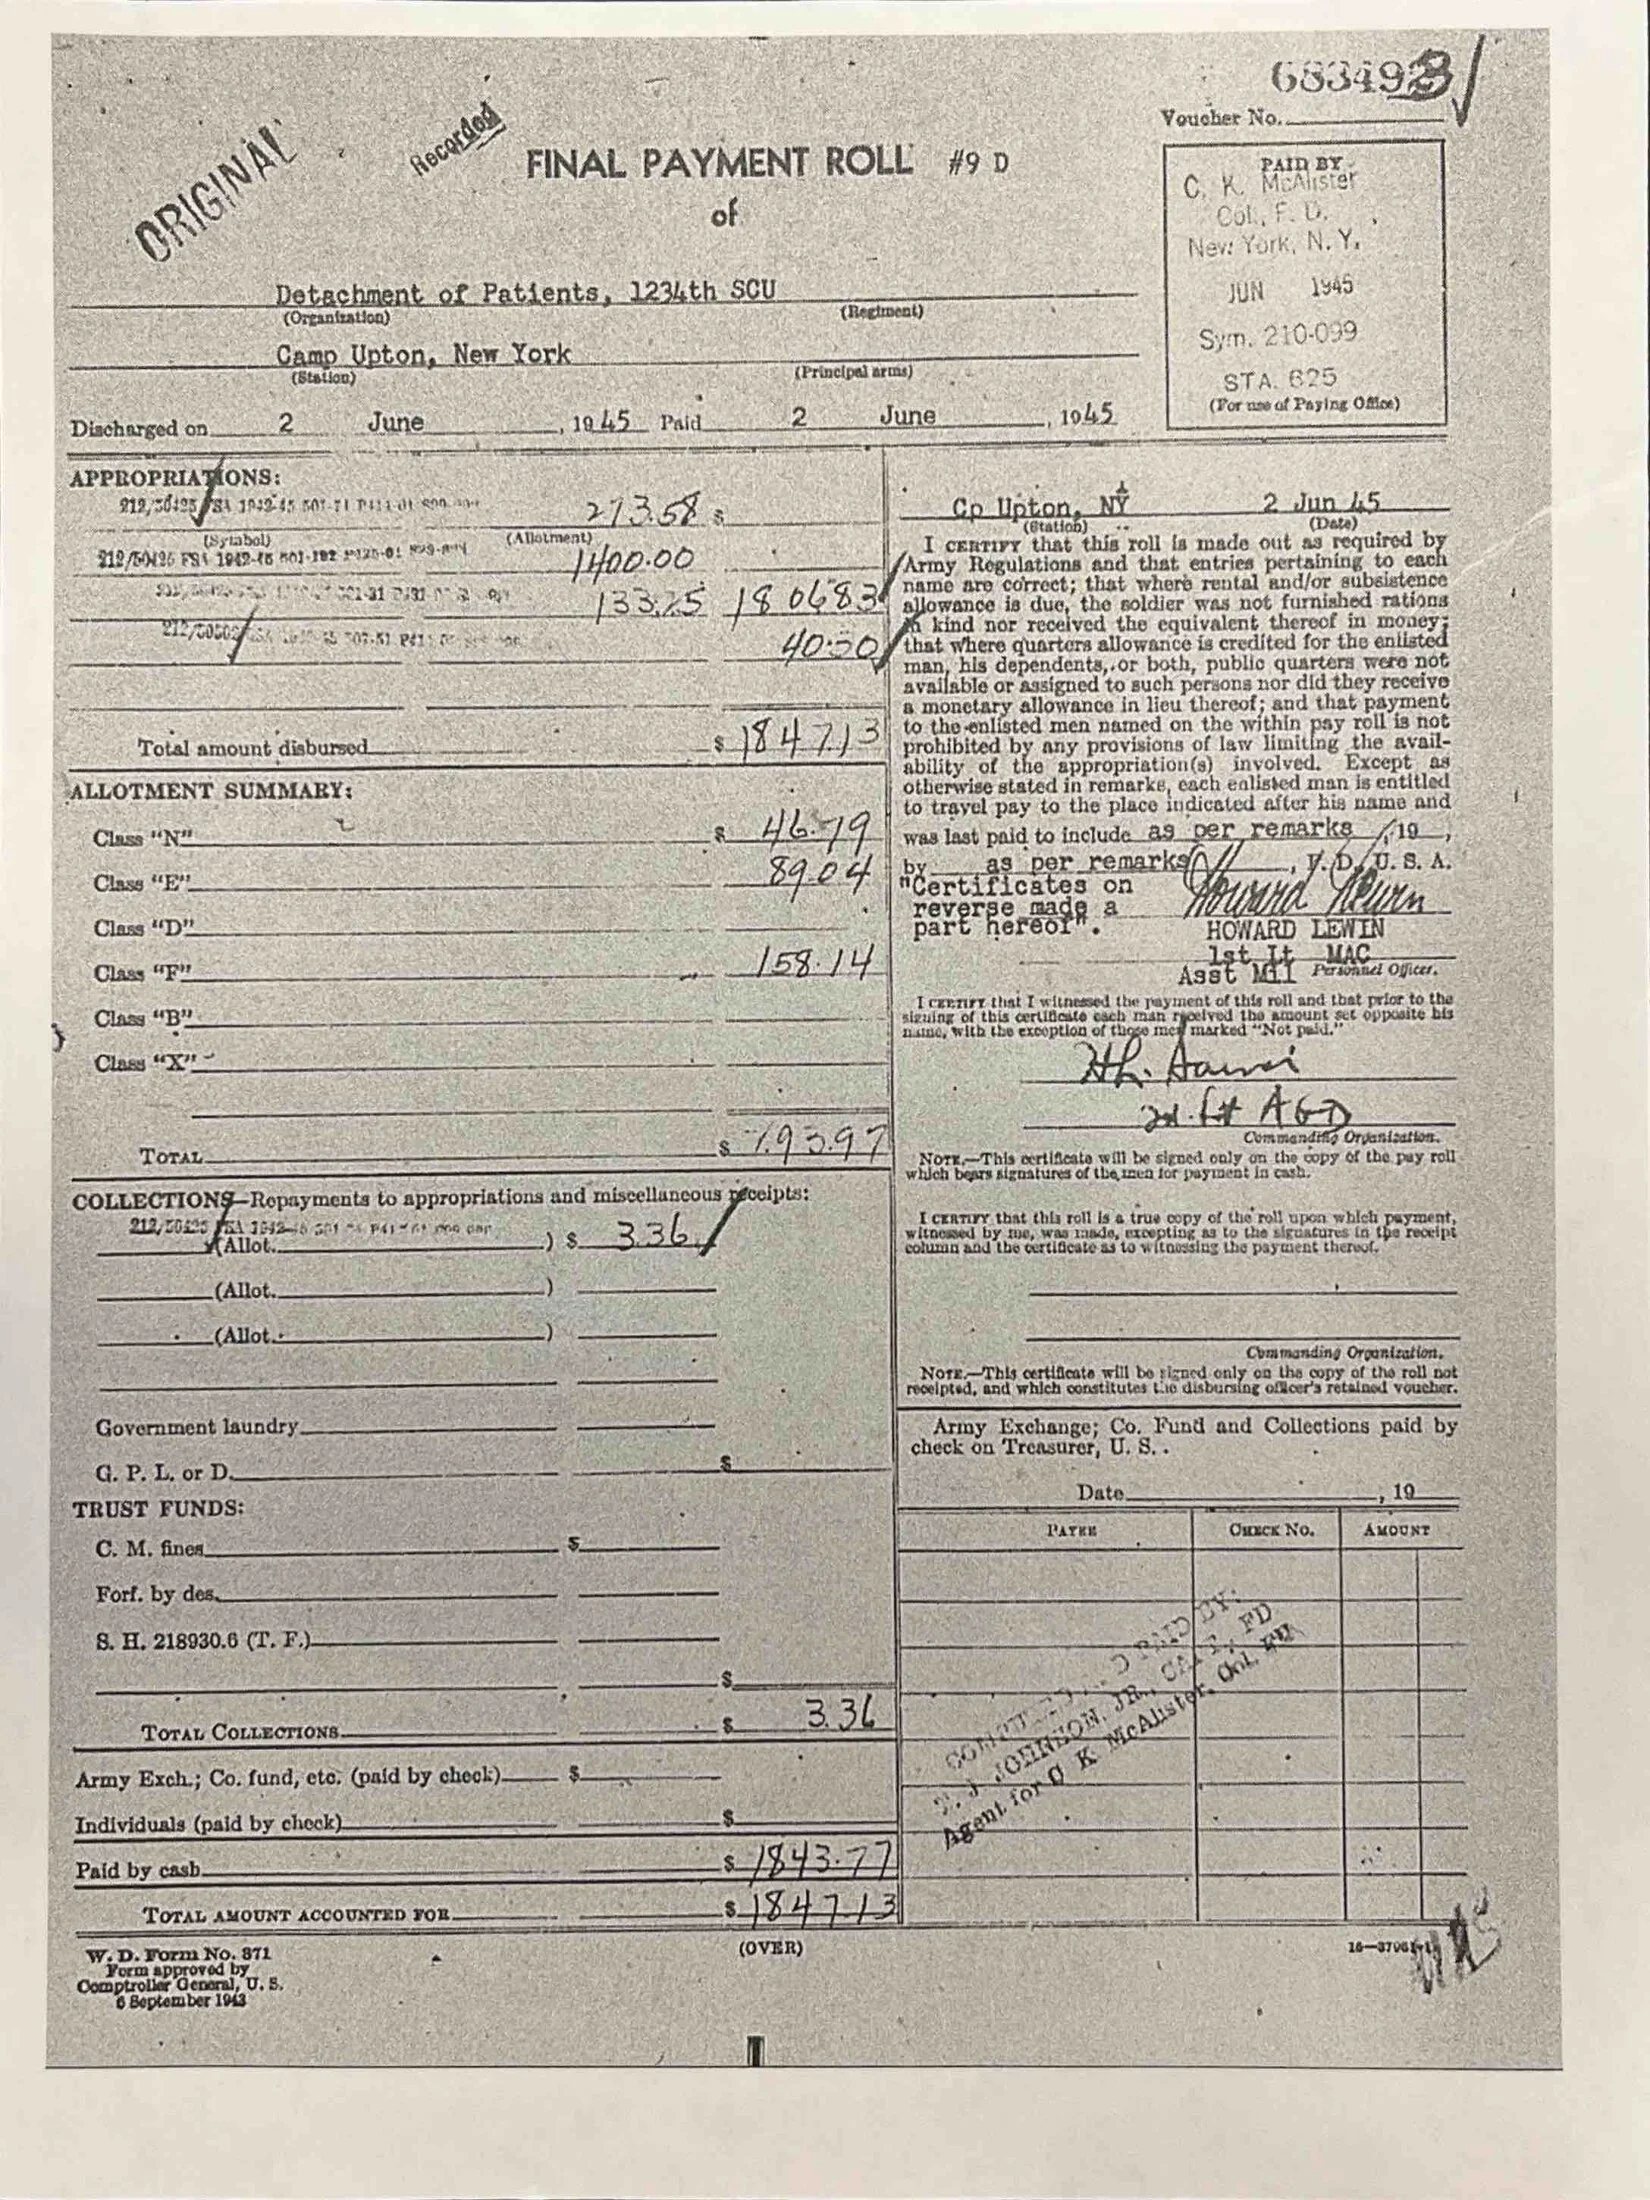 683493
Voucher No.
ORIGINAL
Recorded
FINAL PAYMENT ROLL #9 D
of
PAID BY
C. K. McAlister
Col., F. D.
New York, N. Y.
JUN 1945
Sym. 210-099
STA. 625
(For use of Paying Office)
Detachment of Patients, 1234th SCU
(Organization) (Regiment)
Camp Upton, New York
(Station) (Principal arms)
Discharged on 2 June, 1945 Paid 2 June, 1945
APPROPRIATIONS:
273.58 $
(Symbol) (Allotment)
1400.00
133.25 1806.83
40.30
Total amount disbursed $ 1847.13
ALLOTMENT SUMMARY:
Class "N" $ 46.79
Class "E" 89.04
Class "D"
Class "F" 158.14
Class "B"
Class "X"
TOTAL $ 93.97
COLLECTIONS—Repayments to appropriations and miscellaneous receipts:
(Allot. ) $ 3.36
(Allot. )
(Allot. )
Government laundry
G. P. L. or D. $
TRUST FUNDS:
C. M. fines $
Forf. by des.
S. H. 218930.6 (T. F.)
$
TOTAL COLLECTIONS $ 3.36
Army Exch.; Co. fund, etc. (paid by check) $
Individuals (paid by check) $
Paid by cash $ 1843.77
TOTAL AMOUNT ACCOUNTED FOR $ 1847.13
W. D. Form No. 371
Form approved by
Comptroller General, U. S.
6 September 1943
(OVER)
Cp Upton, NY 2 Jun 45
(Station) (Date)
I CERTIFY that this roll is made out as required by
Army Regulations and that entries pertaining to each
name are correct; that where rental and/or subsistence
allowance is due, the soldier was not furnished rations
in kind nor received the equivalent thereof in money;
that where quarters allowance is credited for the enlisted
man, his dependents, or both, public quarters were not
available or assigned to such persons nor did they receive
a monetary allowance in lieu thereof; and that payment
to the enlisted men named on the within pay roll is not
prohibited by any provisions of law limiting the avail-
ability of the appropriation(s) involved. Except as
otherwise stated in remarks, each enlisted man is entitled
to travel pay to the place indicated after his name and
was last paid to include as per remarks, 19 ,
by as per remarks , F. D., U. S. A.
"Certificates on
reverse made a
part hereof".
Howard Lewin
HOWARD LEWIN
1st Lt MAC
Asst Mil Personnel Officer.
I CERTIFY that I witnessed the payment of this roll and that prior to the
signing of this certificate each man received the amount set opposite his
name, with the exception of those men marked "Not paid."
2d. Lt AGD
Commanding Organization.
NOTE.—This certificate will be signed only on the copy of the pay roll
which bears signatures of the men for payment in cash.
I CERTIFY that this roll is a true copy of the roll upon which payment,
witnessed by me, was made, excepting as to the signatures in the receipt
column and the certificate as to witnessing the payment thereof.
Commanding Organization.
NOTE.—This certificate will be signed only on the copy of the roll not
receipted, and which constitutes the disbursing officer's retained voucher.
Army Exchange; Co. Fund and Collections paid by
check on Treasurer, U. S.
Date , 19
PAYEE CHECK NO. AMOUNT
PAID BY:
JOHNSON, JR., CAPT., FD
Agent for C K McAlister, Col. FD